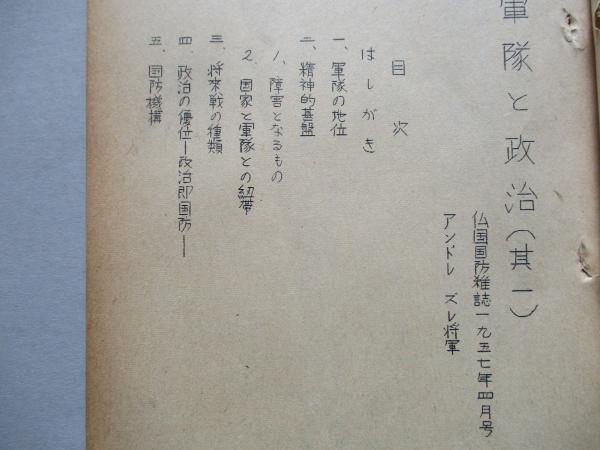 軍隊と政治(其一)
仏国国防雑誌一九五七年四月号
アンドレ ズレ将軍
目次
はしがき
一、軍隊の地位
二、精神的基盤
1、障害となるもの
2、国家と軍隊との紐帯
三、将来戦の種類
四、政治の優位―政治即国防―
五、国防機構